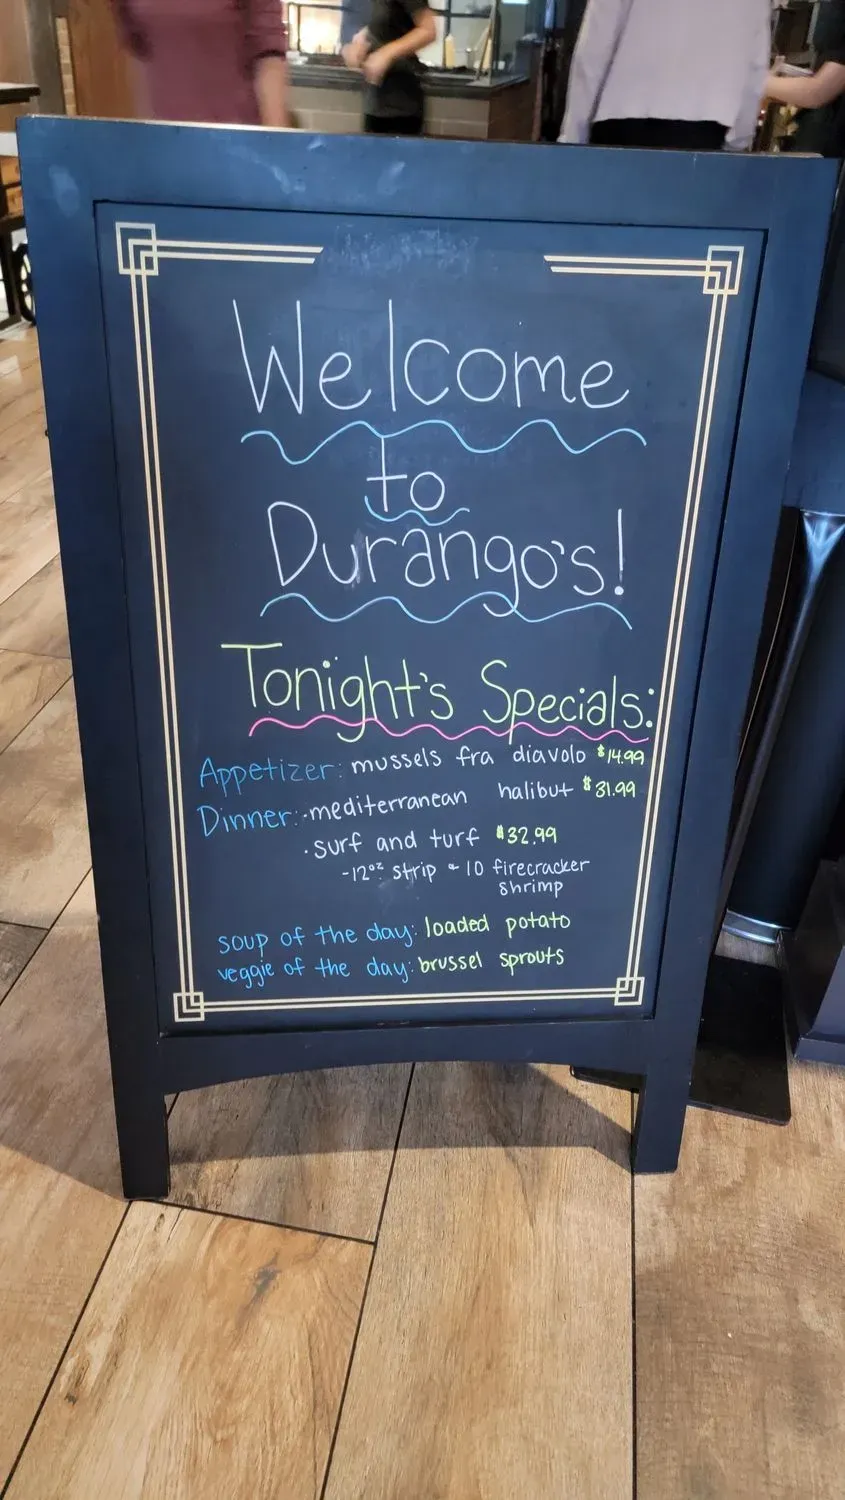 Welcome
to
Durango's!
Tonight's Specials:
Appetizer: mussels fra diavolo $14.99
Dinner: · mediterranean halibut $31.99
· surf and turf $32.99
- 12oz strip & 10 firecracker
shrimp
soup of the day: loaded potato
veggie of the day: brussel sprouts